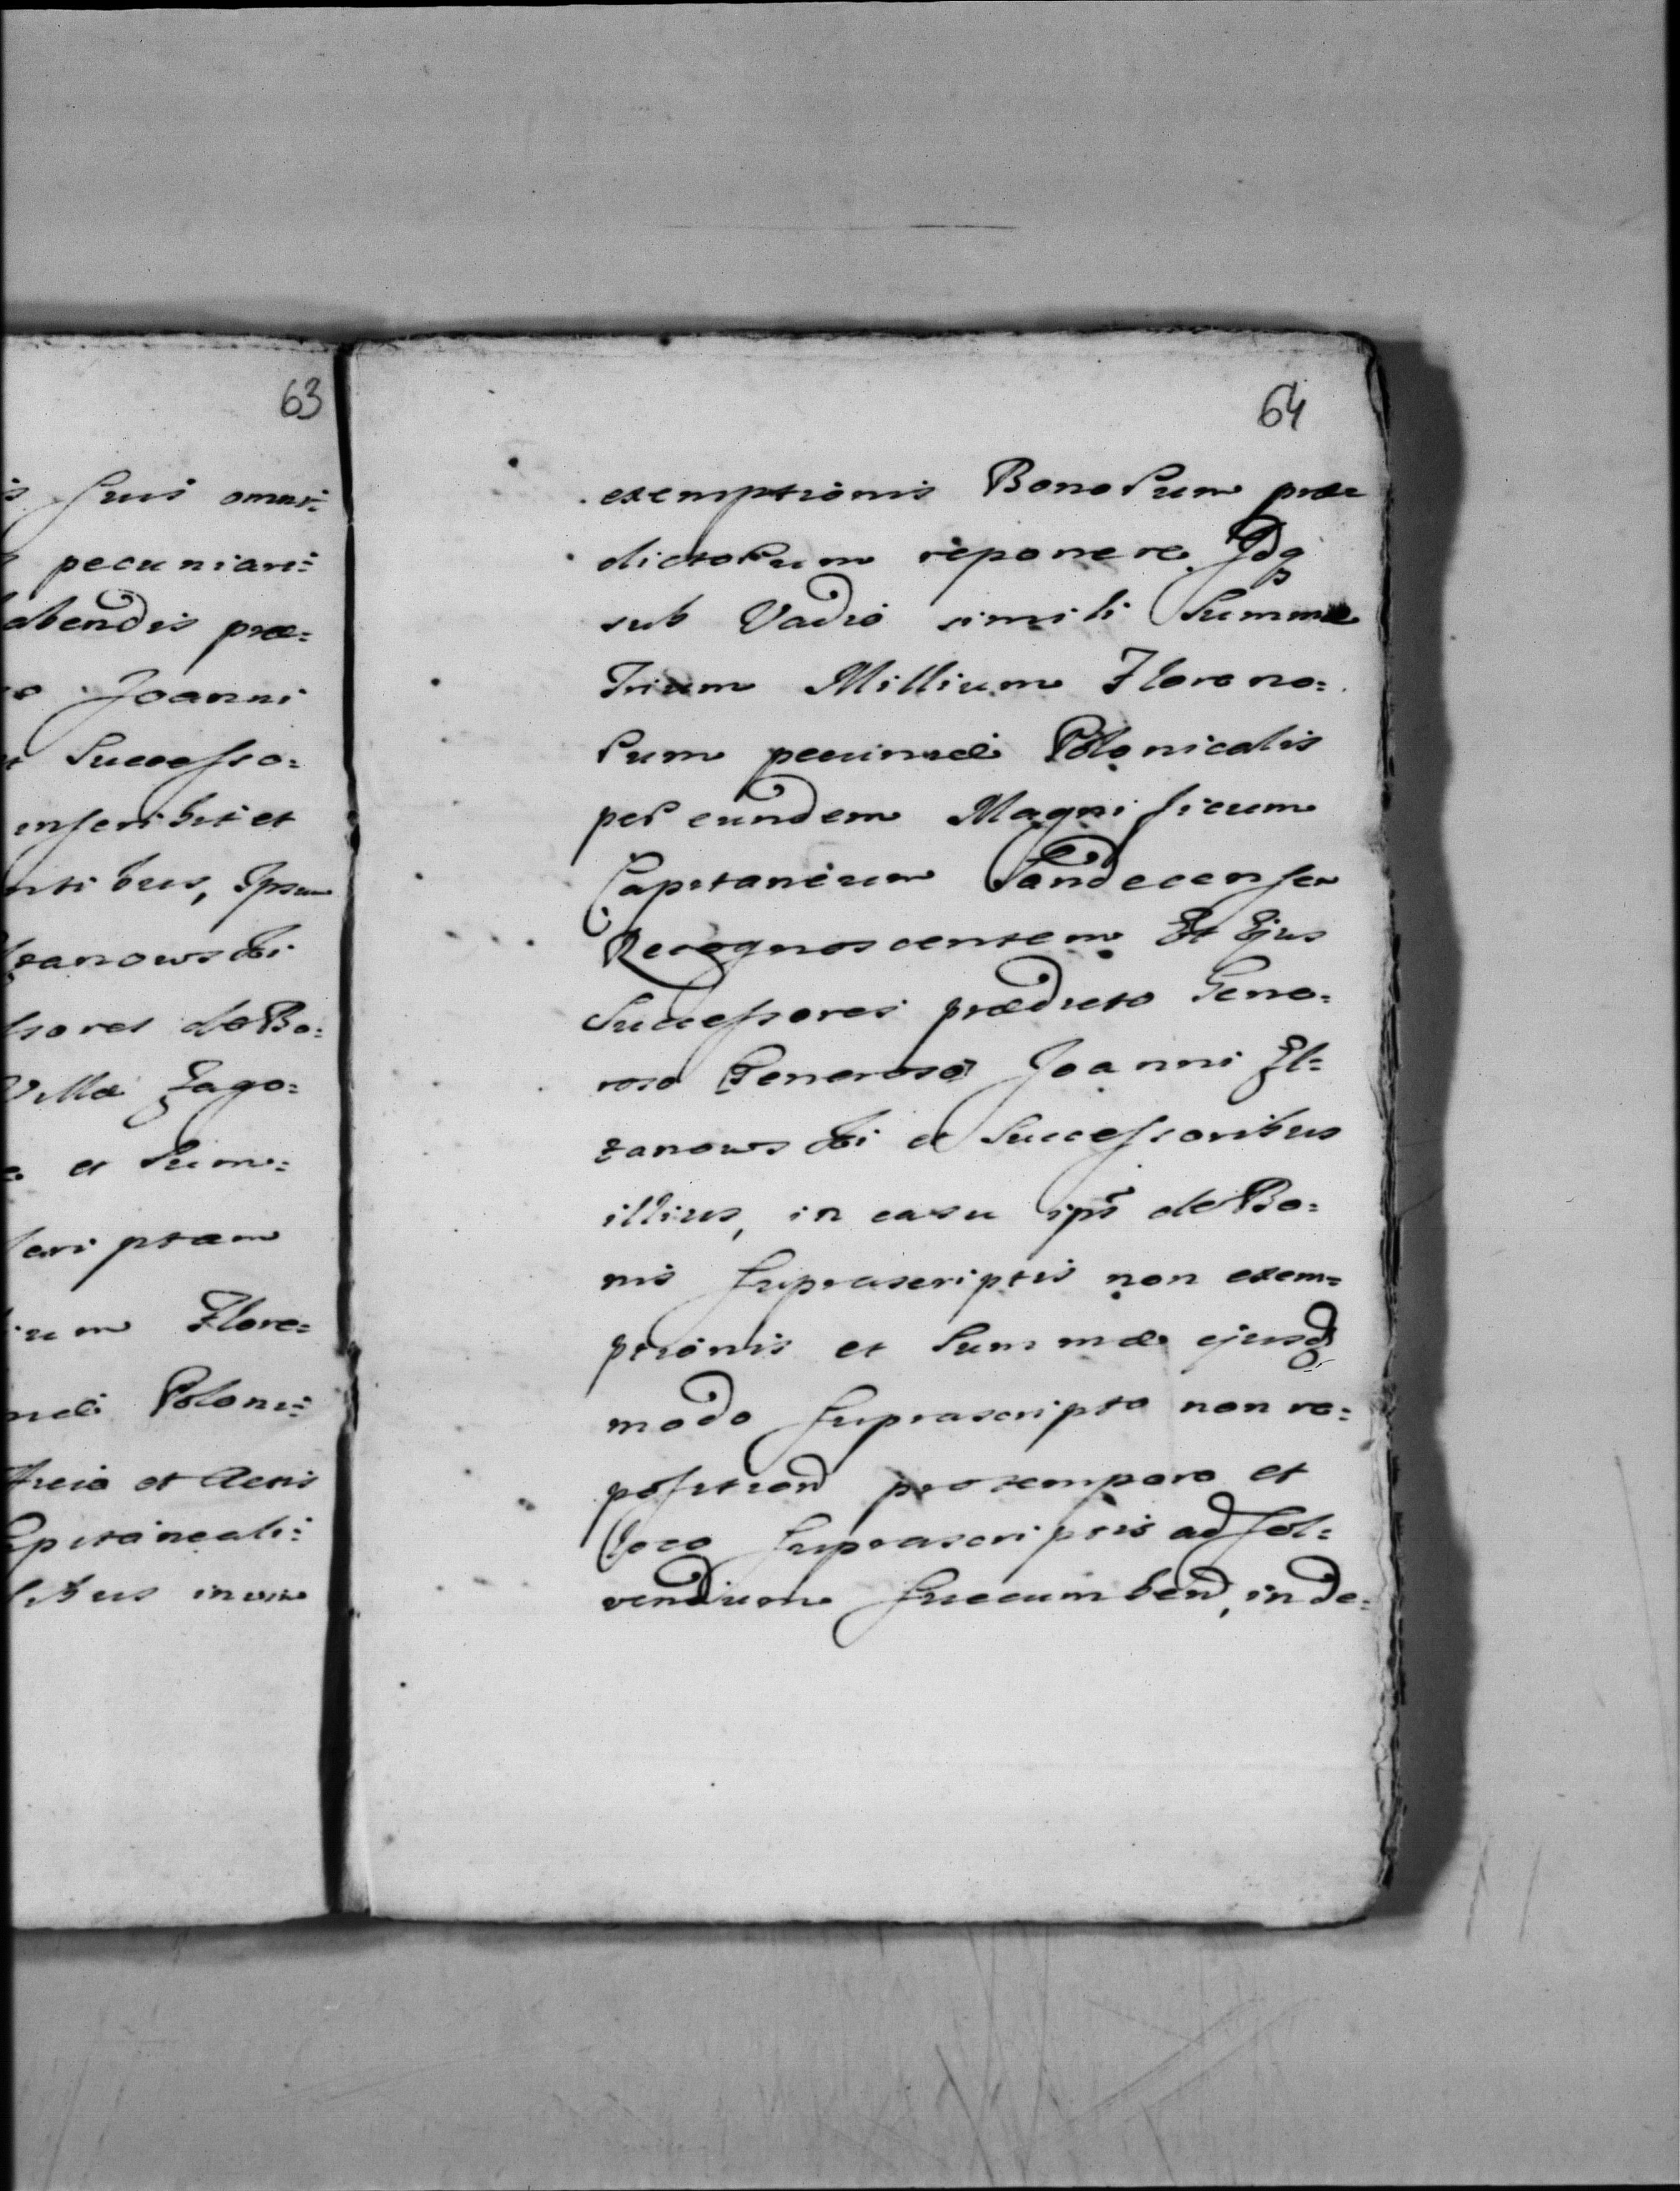 63
s suis omni=
s pecuniari=
abendis præ=
o Joanni
et Successo=
inscribit et
ntibus, Ipsum
zanowski
ssores de Bo=
Villæ Zago=
et Sum=
scriptam
ium Flore=
neti Poloni=
et Actis
apitaneali=
libus in vim
64
exemptionis Bonorum præ
dictorum reponere. Idq
sub Vadio simili Summæ
Trium Millium Floreno=
rum pecuniæ Polonicalis
per eundem Magnificum
Capitaneum Sandecensem
Recognoscentem Et Ejus
Successores prædicto Gene=
roso Generoso Joanni El=
zanowski et Successoribus
illius, in casu ips de Bo=
nis suprascriptis non exem=
ptionis et Summæ ejusd
modo suprascripto non re=
position pro tempore et
loco suprascriptis ad sol=
vendum succumbend, inde=